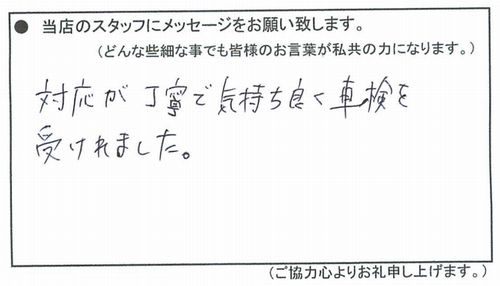 ● 当店のスタッフにメッセージをお願い致します。
（どんな些細な事でも皆様のお言葉が私共の力になります。）
対応が丁寧で気持ち良く車検を
受けれました。
（ご協力心よりお礼申し上げます。）